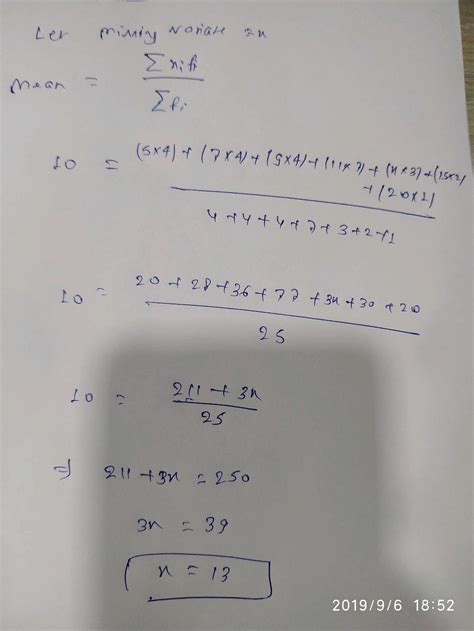 Let missing variate = x
Mean = Σxifi / Σfi
10 = (5×4) + (7×4) + (9×4) + (11×7) + (x×3) + (15×2) + (20×1) / 4+4+4+7+3+2+1
10 = 20 + 28 + 36 + 77 + 3x + 30 + 20 / 25
10 = 211 + 3x / 25
⇒ 211 + 3x = 250
3x = 39
x = 13
2019/9/6 18:52